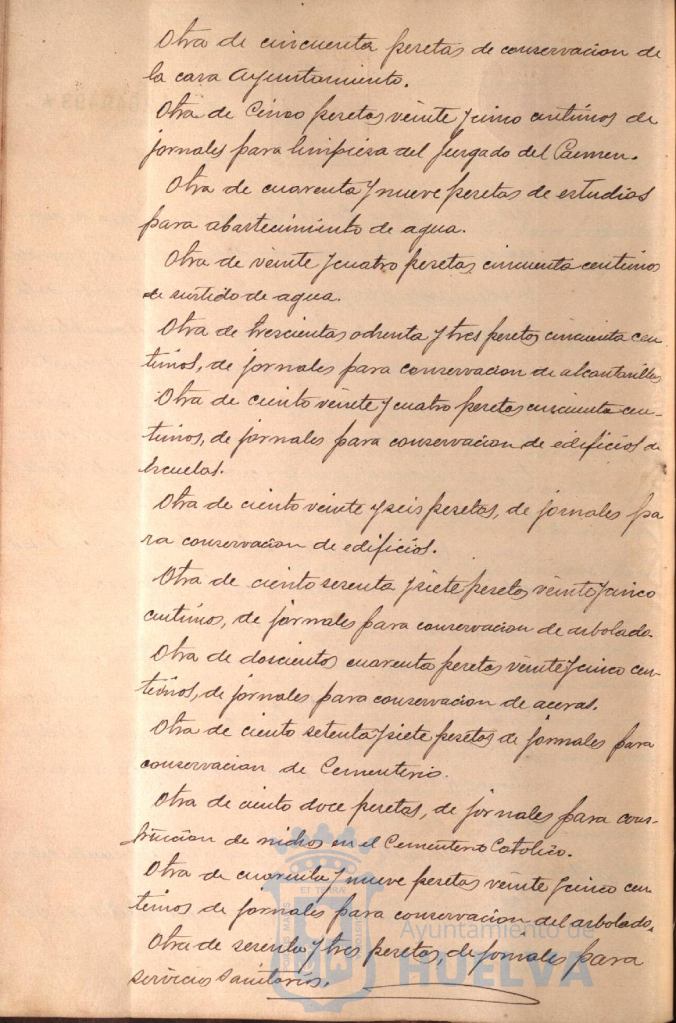 Otra de cincuenta pesetas de conservacion de
la casa Ayuntamiento.
Otra de Cinco pesetas veinte y cinco centimos de
jornales para limpiesa del Juzgado del Carmen.
Otra de cuarenta y nueve pesetas de estudios
para abastecimiento de agua.
Otra de veinte y cuatro pesetas cincuenta centimos
de surtido de agua.
Otra de trescientas ochenta y tres pesetas cincuenta cen
timos, de jornales para conservacion de alcantarillas
Otra de ciento veinte y cuatro pesetas cincuenta cen-
timos, de jornales para conservacion de edificios de
Escuelas.
Otra de ciento veinte y seis pesetas, de jornales pa
ra conservacion de edificios.
Otra de ciento sesenta y siete pesetas veinte y cinco
centimos, de jornales para conservacion de arbolado.
Otra de doscientos cuarenta pesetas veinte y cinco cen-
timos, de jornales para conservacion de aceras.
Otra de ciento setenta y siete pesetas de jornales para
conservacion de Cementerio.
Otra de ciento doce pesetas, de jornales para cons-
truccion de nichos en el Cementerio Catolico.
Otra de cuarenta y nueve pesetas veinte y cinco cen-
timos de jornales para conservacion del arbolado.
Otra de sesenta y tres pesetas, de jornales para
servicios sanitarios.
Ayuntamiento de
HUELVA